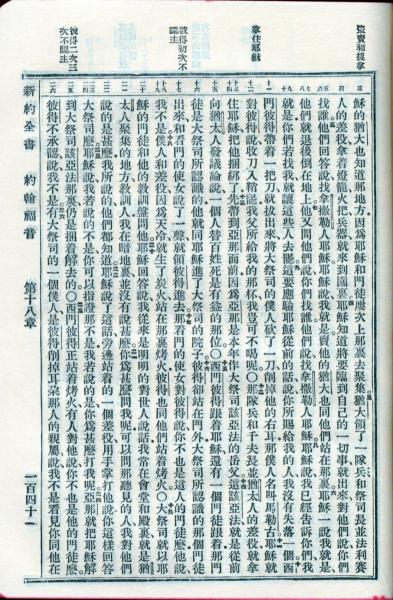 拿住耶穌
彼得初次不認主
彼得二次三次不認主
穌的猶大也知道那地方因爲耶穌和門徒屢次上那裏去聚集猶大領了一隊兵和祭司長並法利賽
人的差役拿着燈籠火把兵器就來到園裏耶穌知道將要臨到自己的一切事就出來對他們說你們
找誰他們回答說找拿撒勒人耶穌耶穌說我就是賣他的猶大也同他們站在那裏耶穌一說我就是
他們就退後倒在地上他又問他們說你們找誰他們說找拿撒勒人耶穌耶穌說我已經告訴你們我
就是你們若找我就讓這些人去罷這要應驗耶穌從前的話說你所賜給我的人我沒有失落一個西
門彼得帶着一把刀就拔出來將大祭司的僕人砍了一刀削掉他的右耳那僕人名叫馬勒古耶穌就
對彼得說收刀入鞘罷我父所給我的那杯我豈可不喝呢○那隊兵和千夫長並猶太人的差役就拿
住耶穌把他捆綁了先帶到亞那面前因爲亞那是本年作大祭司該亞法的岳父這該亞法就是從前
向猶太人發議論說一個人替百姓死是有益的那位○西門彼得跟着耶穌還有一個門徒跟着那門
徒是大祭司所認識的他就同耶穌進了大祭司的院子彼得卻站在門外大祭司所認識的那個門徒
出來和看門的使女說了一聲就領彼得進去那看門的使女對彼得說你不也是這人的門徒麼他說
我不是僕人和差役因爲天冷就生了炭火站在那裏烤火彼得也同他們站着烤火○大祭司就以耶
穌的門徒和他的教訓盤問他耶穌回答說我從來是明明的對世人說話我常在會堂和殿裏就是猶
太人聚集的地方教訓人我在暗地裏並沒有說甚麼你爲甚麼問我呢可以問那聽見的人我對他們
說的是甚麼我所說的他們都知道耶穌說了這話旁邊站着的一個差役用手掌打他說你這樣回答
大祭司麼耶穌說我若說的不是你可以指證那不是我若說的是你爲甚麼打我呢亞那就把耶穌解
到大祭司該亞法那裏仍是捆着解去的○西門彼得正站着烤火有人對他說你不也是他的門徒麼
彼得不承認說我不是有大祭司的一個僕人是彼得削掉耳朵那人的親屬說我不是看見你同他在
新約全書 約翰福音 第十八章 一百四十一